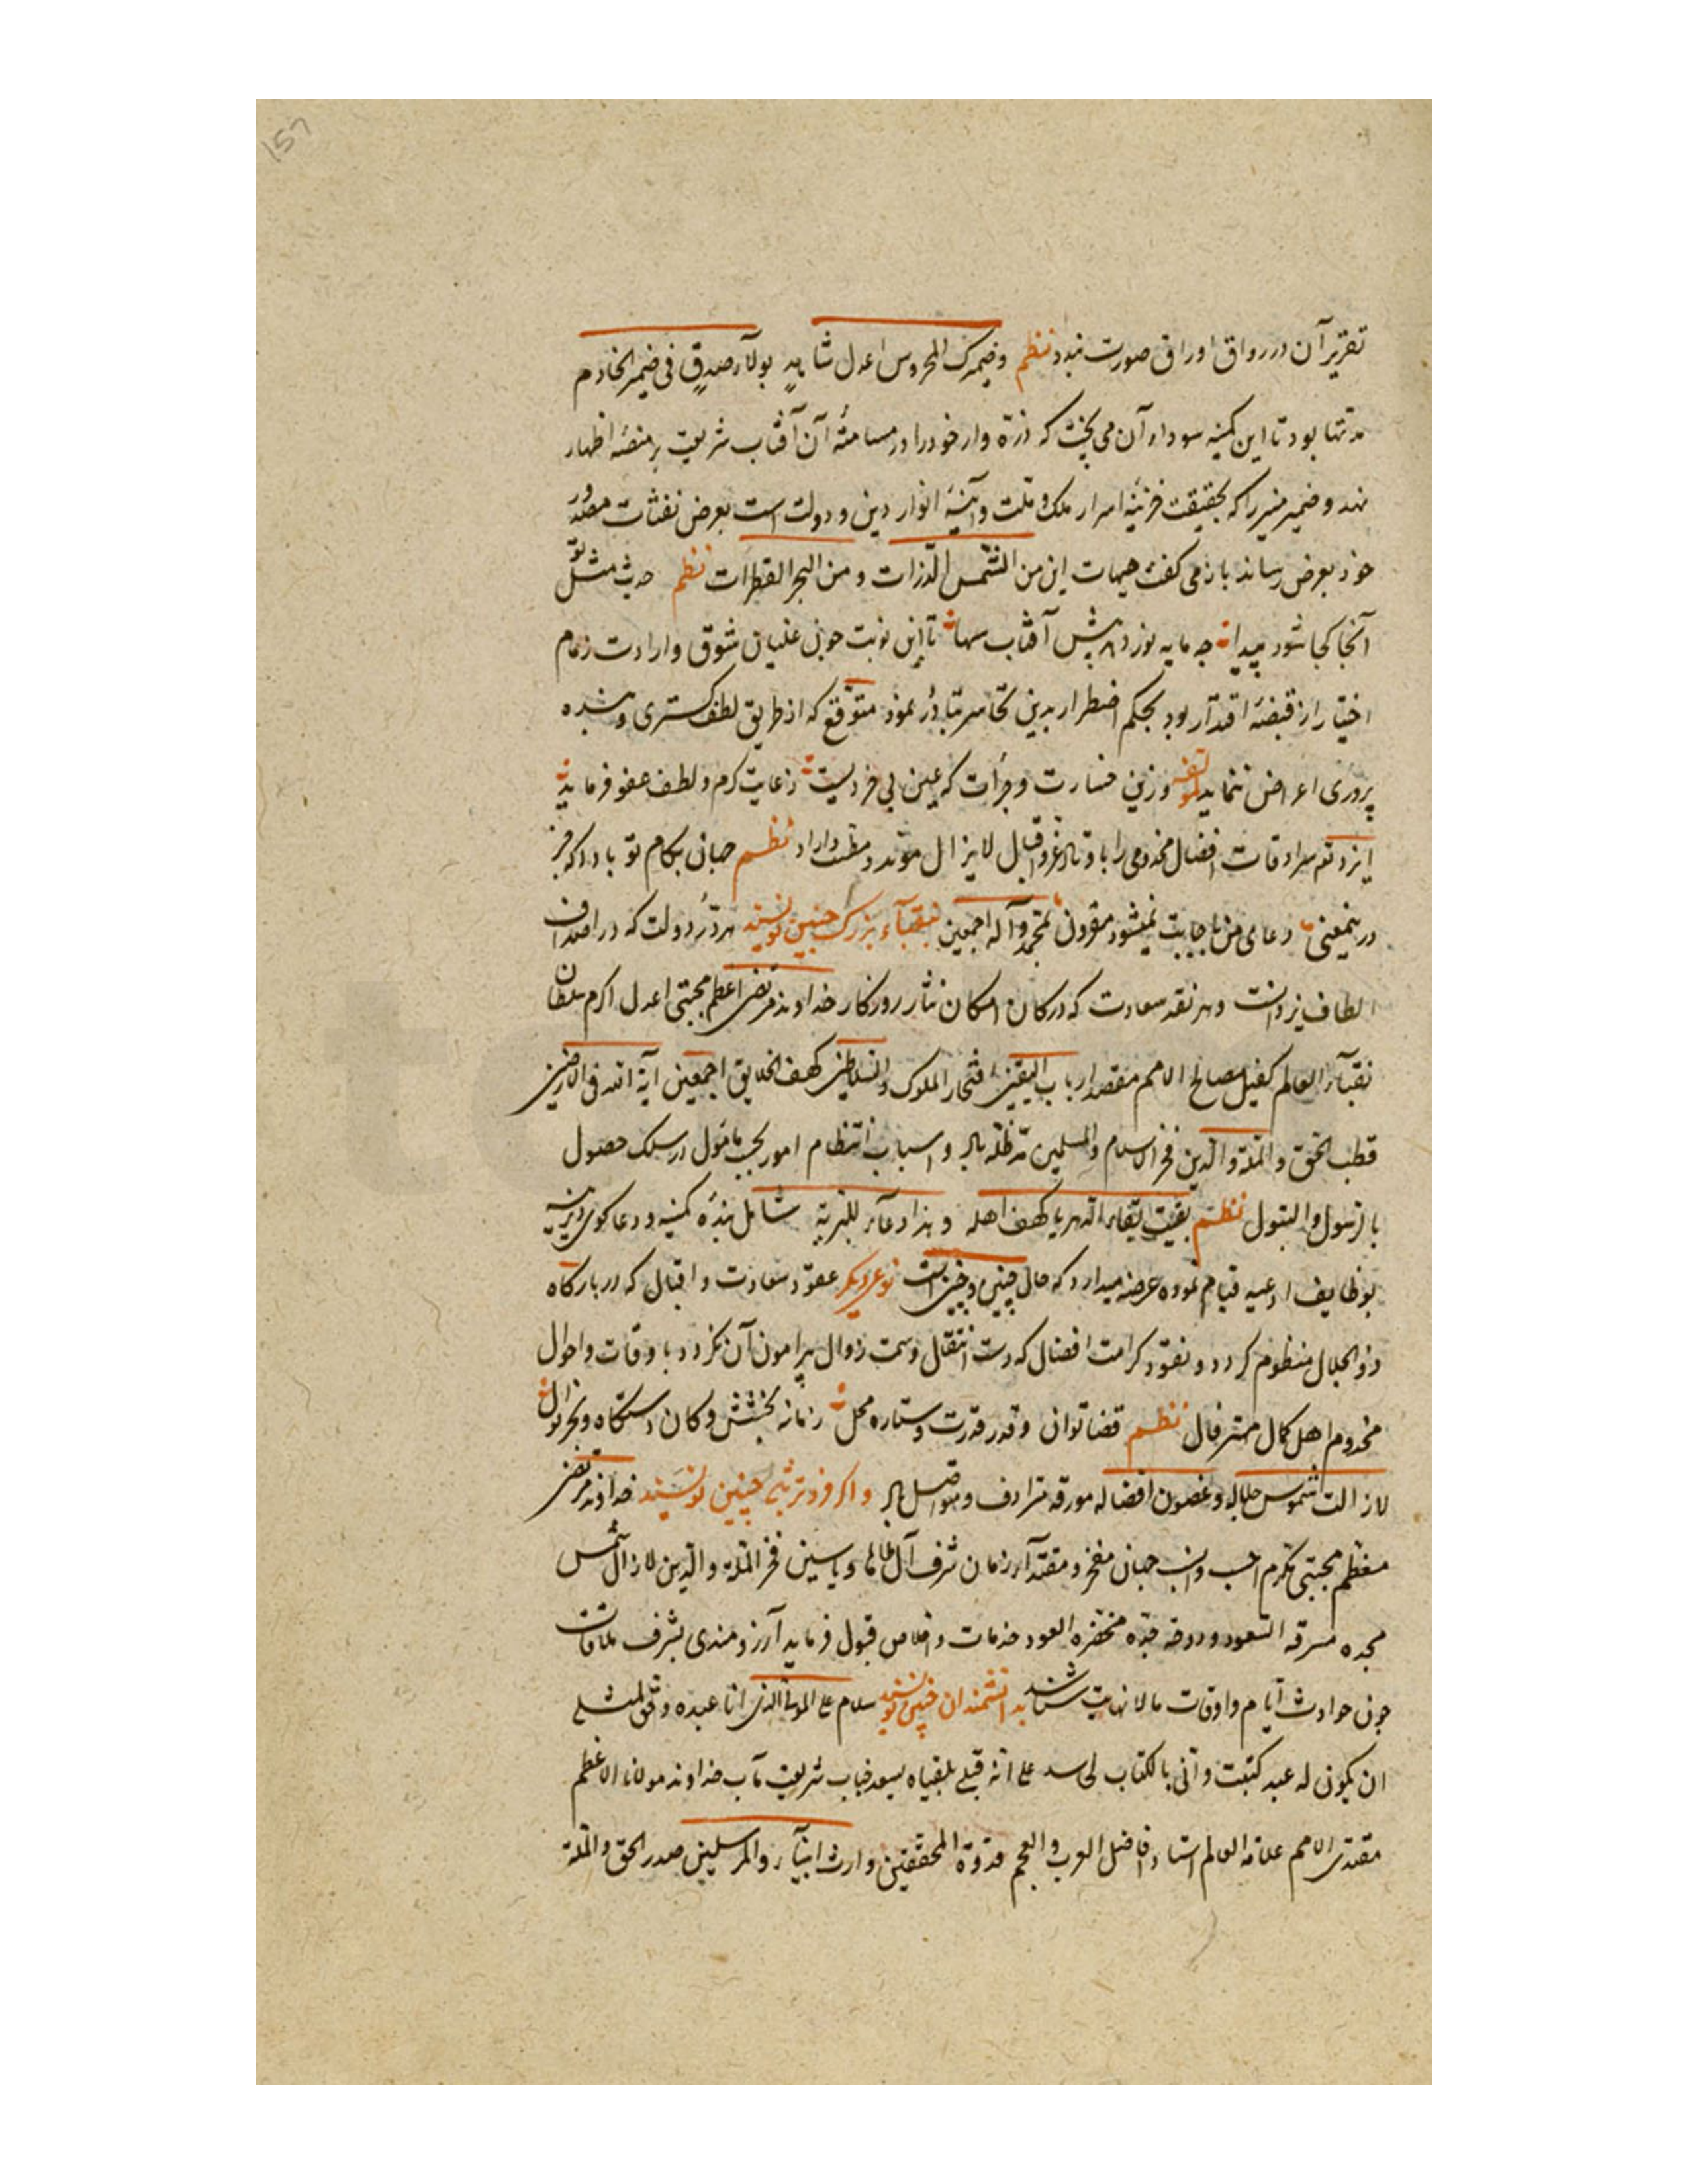 157
تقریر آن در رواق اوراق صورت نبندد نظم وضمیرک المحروس اعدل شاهد بولآء صدق فی ضمیر الخادم
مدتها بود تا این کمینه سوداء آن می پخت که ذره وار خود را در مسامته آن آفتاب شریعت بر منصهٔ اظهار
نهد و ضمیر منیر را که بحقیقت خزینهٔ اسرار ملک و ملت و آینهٔ انوار دین و دولت است بعرض نفثات مصدور
خود بعرض رساند باز می گفت هیهات این من الشمس الذرات و من البحر القطرات نظم حدیث مثل تو
آنجا کجا شود پیدا جه مایه نور دهد پیش آفتاب سها تا این نوبت جون غلیان شوق و ارادت زمام
اختیار از قبضهٔ اقتدار ربود بحکم اضطرار بدین تجاسر تبادر نمود متوقع که از طریق لطف کستری و بنده
پروری اعراض ننماید وزین جسارت و جرأت که عین بی خردیست زعایت کرم و لطف عفو فرماید
ایزد تع سرادقات افضال مخدومی را باوتاد عز و اقبال لا یزال موتد و مطنب داراد نظم جهان بکام تو بادا که جز
درینمعنی دعای من باجابت نمیشود مقرون بمحمد وآله اجمعین بنقبآء بزرک جنین نویسند هر در دولت که در اصداف
الطاف یزدانست و هر نقد سعادت که در کان امکان نثار روزکار خداوند مرتضی اعظم مجتبی اعدل اکرم سلطان
نقبآء العالم کفیل مصالح الامم مقصد ارباب الیقین افتخار الملوک والسلاطین کهف الخلایق اجمعین آیة الله فی الارضین
قطب الحق والملة والدین فخر الاسلام والمسلمین مد ظله باد و اسباب انتظام امور بحسب مامول در سلک حصول
بالرسول والبتول نظم بقیت بقاء الدهر یا کهف اهله وهذا دعآء للبریة شامل بندهٔ کمینه و دعاکوی دیرینه
بوظایف ادعیه قیام نموده عرضه میدارد که حال جنین و جنین است نوعی دیکر عقود سعادت و اقبال که در بارکاه
ذو الجلال منظوم کردد و نقود کرامت افضال که دست انتقال وسمت زوال پیرامون آن نکردد باوقات و احوال
مخدوم اهل کمال مشتری فال نظم قضا توان و قدر قدرت و ستاره محل زمانه بخشش و کان دستکاه و بحر نوال
لازالت شموس جلاله وغصون افضاله مورقه مترادف و متواصل باد و اکر فروتر باشد جنین نویسند خداوند مرتضی
معظم مجتبی مکرم حسب و نسب جهان مفخر و مقتدآء زمان شرف آل طاها و یاسین فخر الملة والدین لازال شمس
مجده مشرقه السعود و دوحه جده مخضره العود خدمات و اخلاص قبول فرماید آرزومندی بشرف ملاقات
جون حوادث ایام و اوقات مالا نهایت شناسد بدانشمندان جنین نویسند سلام علی المولی الذی انا عبده وحق لمثلی
ان یکون له عبد کتبت وانی بالکتاب علی انه قبلی بلقیاه یسعد جناب شریعت مآب خداوند مولانا الاعظم
مقتدی الامم علامة العالم استاد افاضل العرب والعجم قدوة المحققین وارث انبیآء والمرسلین صدر الحق والملة